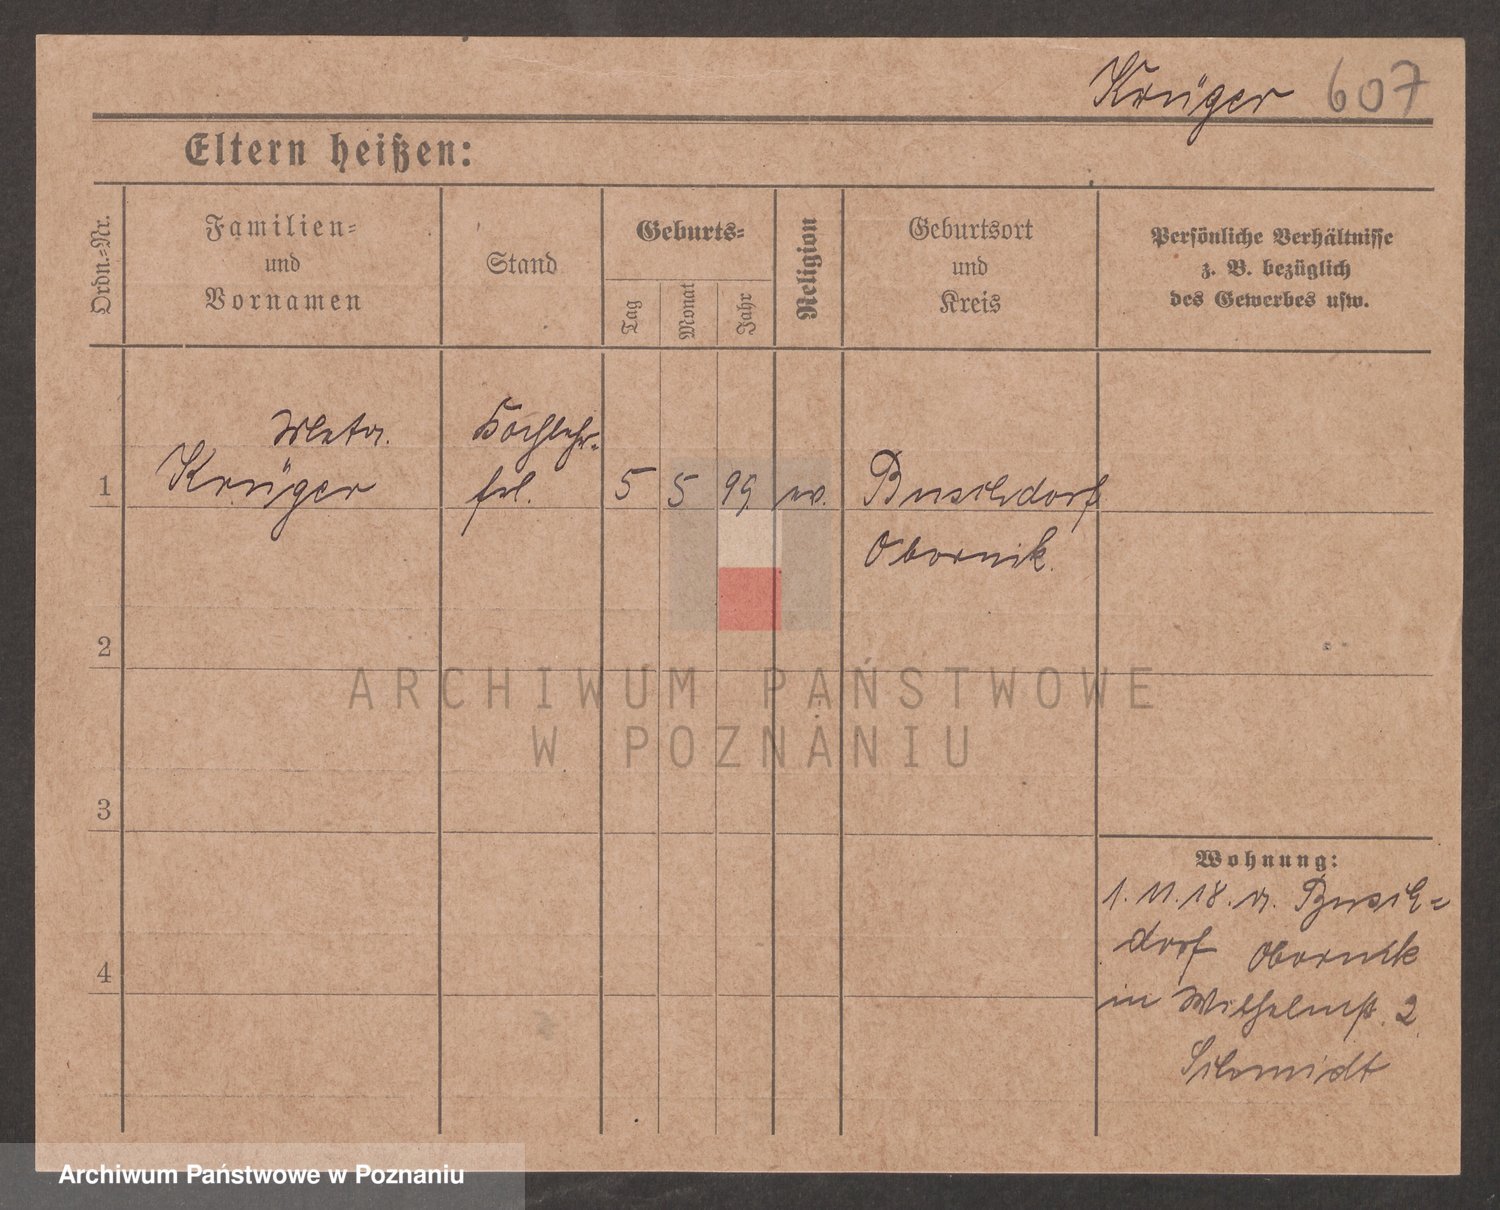 Krüger 607
Eltern heißen:
Ordn.-Nr.
Familien-
und
Vornamen
Stand
Geburts-
Tag
Monat
Jahr
Religion
Geburtsort
und
Kreis
Persönliche Verhältnisse
z. B. bezüglich
des Gewerbes usw.
Meta
Kochlehr-
1 Krüger frl. 5 5 99 ev. Buschdorf
Obornik.
2
3
4
Wohnung:
1.11.18. a. Busch=
dorf Obornik
in Wilhelmst. 2
Schmidt
ARCHIWUM PAŃSTWOWE
W POZNANIU
Archiwum Państwowe w Poznaniu